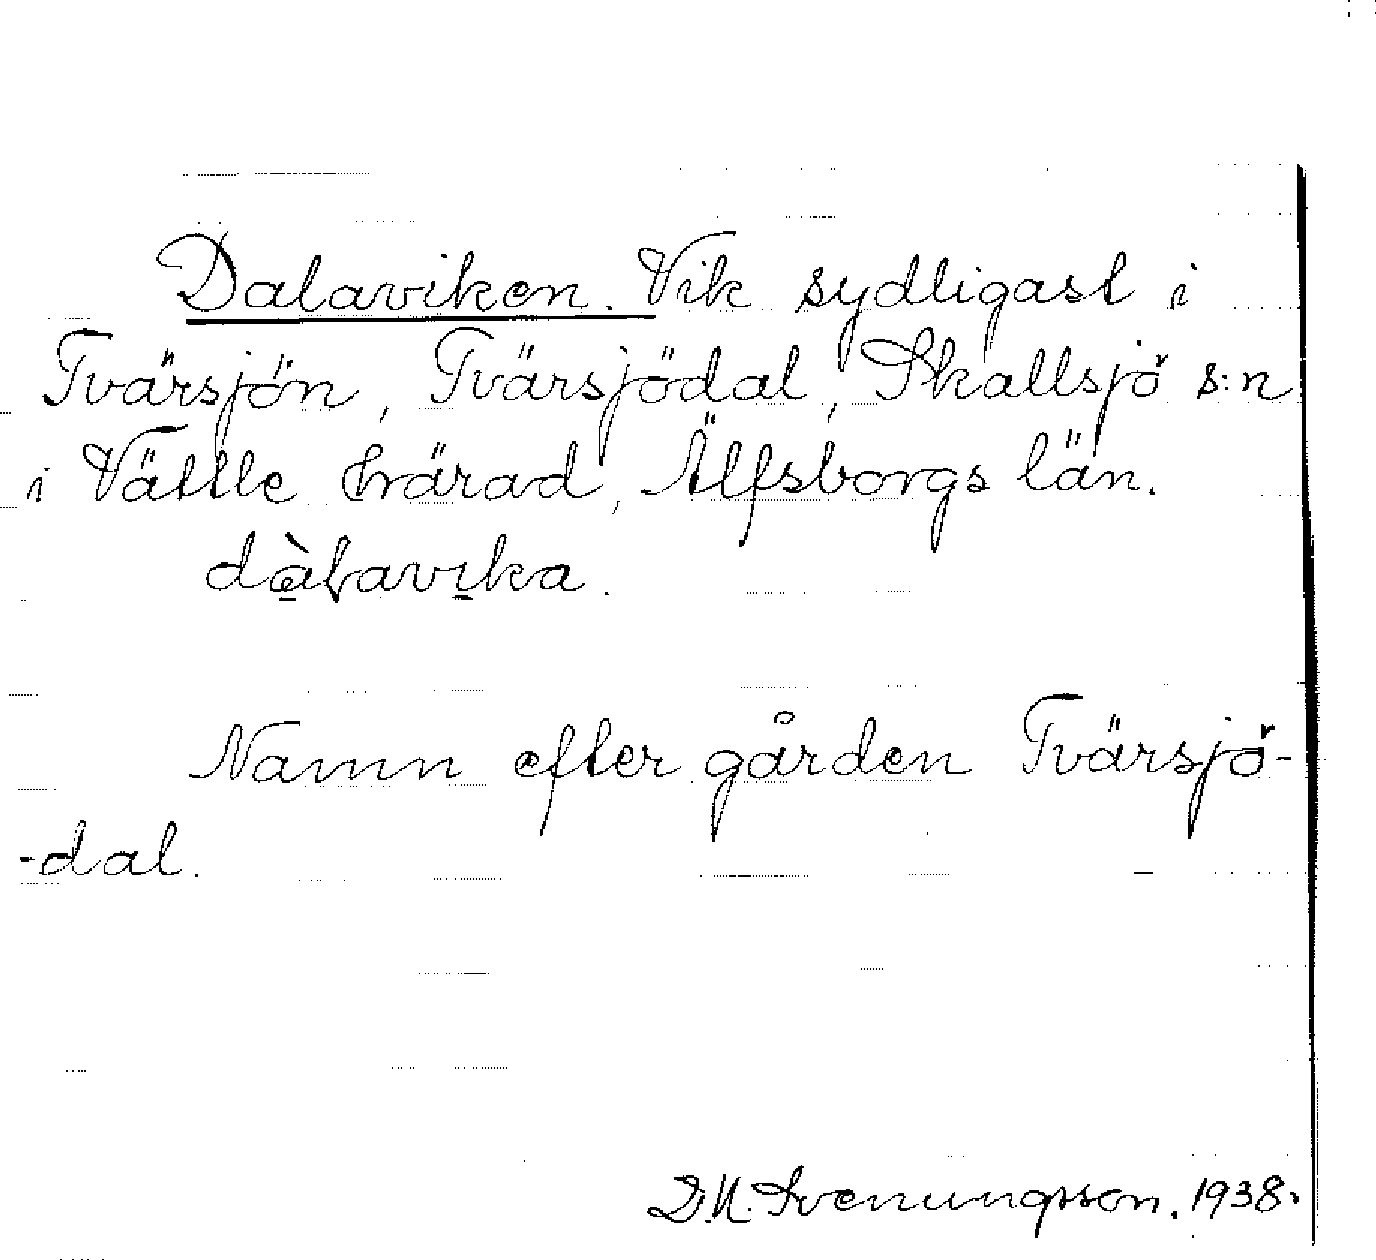 Dalaviken. Vik sydligast i
Tvärsjön, Tvärsjödal, Skallsjö s:n
i Vättle härad, Älfsborgs län.
dàlavika.
Namn efter gården Tvärsjö-
-dal.
D.N. Svenungsson. 1938.